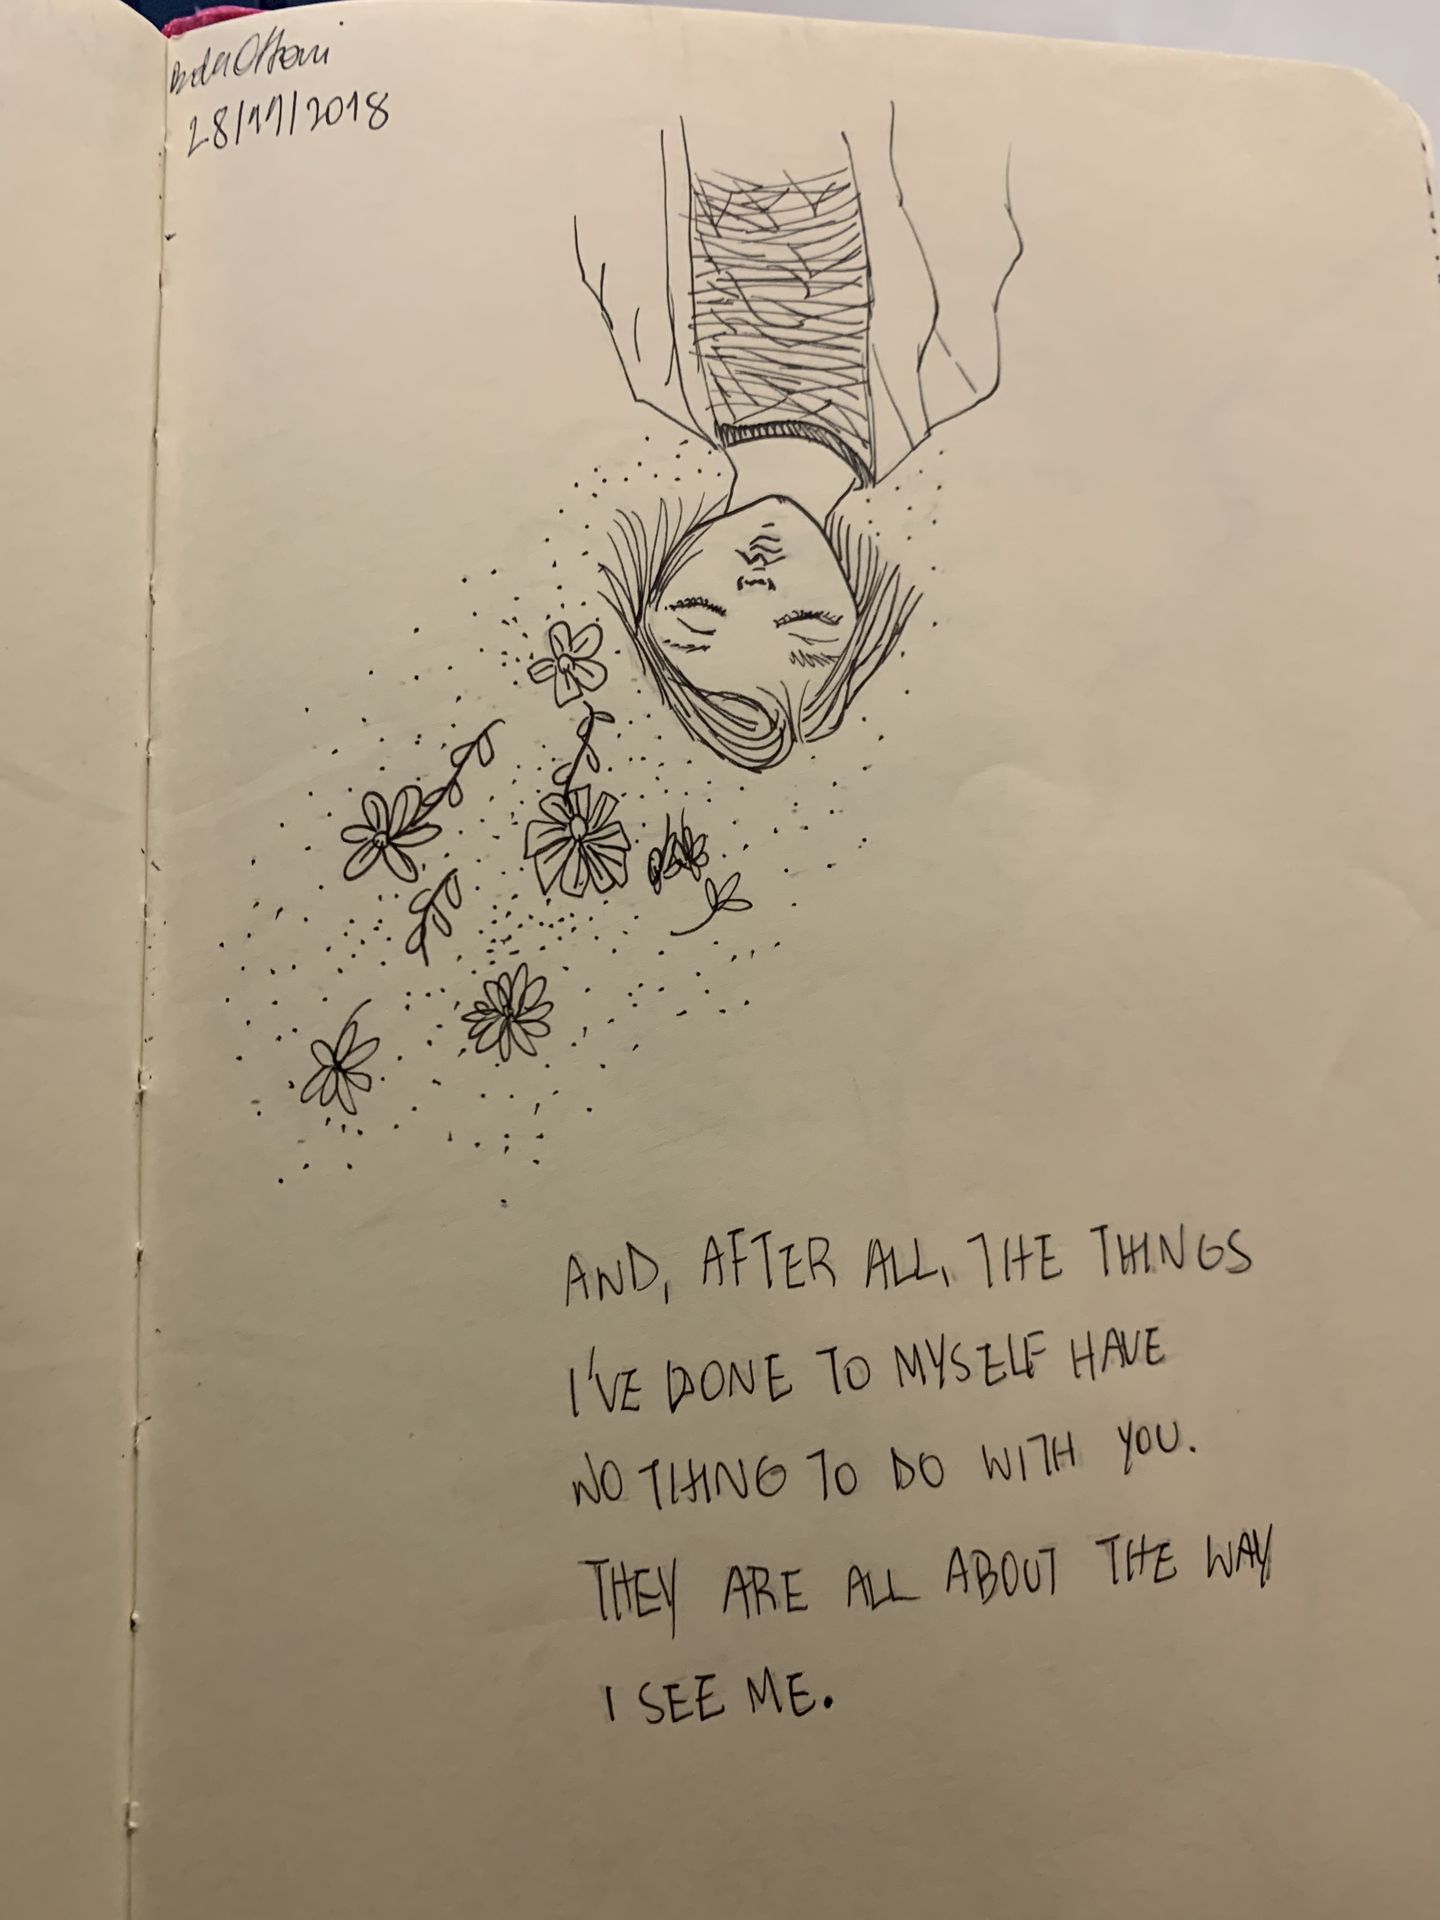 28/11/2018
AND, AFTER ALL, THE THINGS
I'VE DONE TO MYSELF HAVE
NOTHING TO DO WITH YOU.
THEY ARE ALL ABOUT THE WAY
I SEE ME.